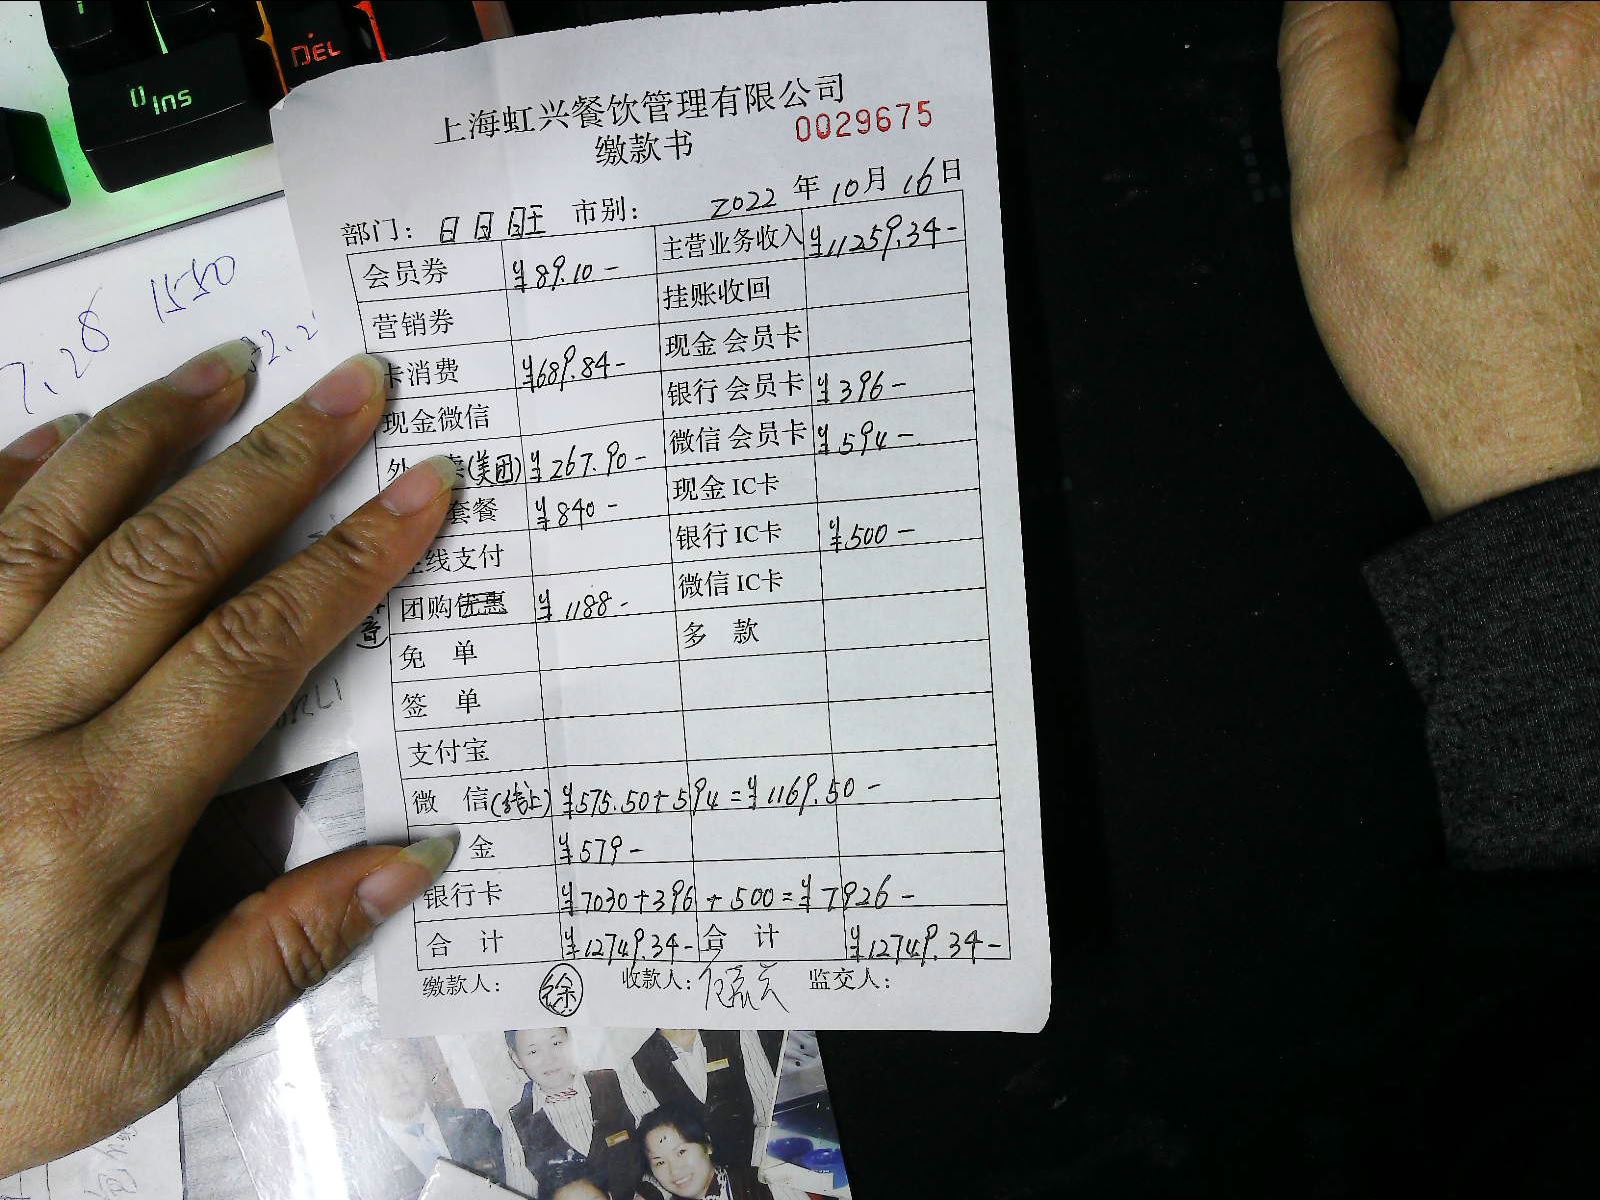 Ins
DEL
上海虹兴餐饮管理有限公司
缴款书 0029675
部门: 日日旺 市别: 2022 年 10 月 16 日
会员券 ¥89.10- 主营业务收入 ¥11259.34-
营销券 挂账收回
卡消费 ¥689.84- 现金 会员卡
现金微信 银行 会员卡 ¥396-
外 卖(美团) ¥267.90- 微信 会员卡 ¥594-
套餐 ¥840- 现金 IC卡
线支付 银行 IC卡 ¥500-
团购优惠 ¥1188- 微信 IC卡
免 单 多 款
签 单
支付宝
微 信(线上) ¥575.50+594=¥1169.50-
金 ¥579-
银行卡 ¥7030+396+500=¥7926-
合 计 ¥12749.34- 合 计 ¥12749.34-
缴款人: 徐 收款人: 监交人:
7.28 1550